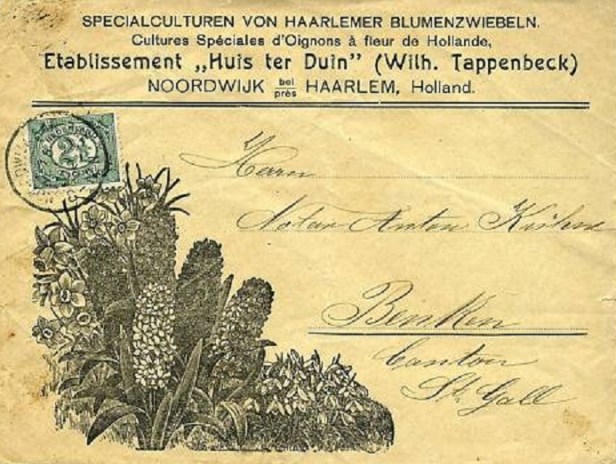 SPECIALCULTUREN VON HAARLEMER BLUMENZWIEBELN.
Cultures Spéciales d'Oignons à fleur de Hollande,
Etablissement „Huis ter Duin” (Wilh. Tappenbeck)
NOORDWIJK bei près HAARLEM, Holland.
2½
Herrn
Notar Anton Kühne
Benken
Canton
St. Gall